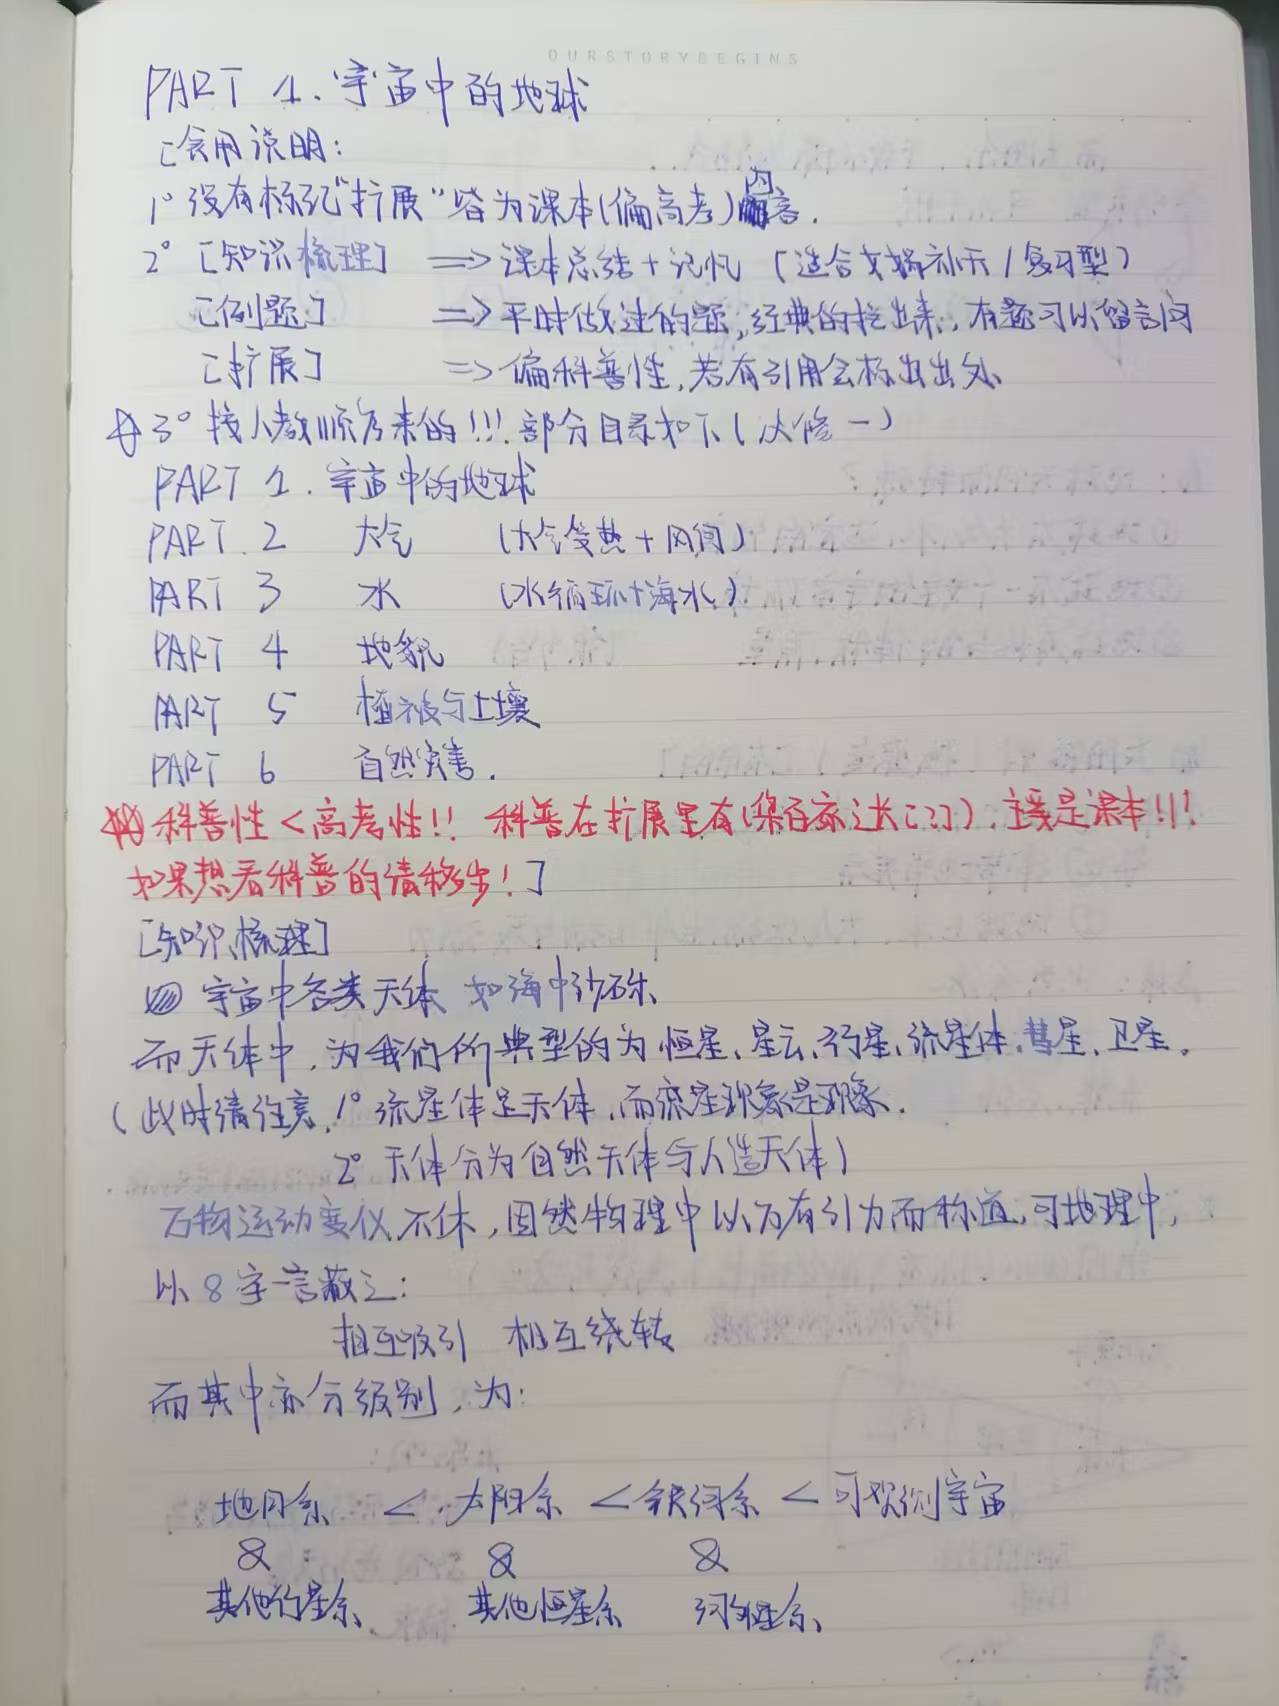 OURSTORYBEGINS
PART 1. 宇宙中的地球
[食用说明:
1° 没有标记"扩展"皆为课本(偏高考)内容.
2° [知识梳理] => 课本总结+记忆 (适合女娲补天/复习型)
[例题] => 平时做过的题,经典的挖出来,有题可以留言问
[扩展] => 偏科普性,若有引用会标出出处
3° 按人教顺序来的!!! 部分目录如下(必修一)
PART 1. 宇宙中的地球
PART. 2 大气 (大气受热+风向)
PART 3 水 (水循环+海水)
PART 4 地貌
PART 5 植被与土壤
PART 6 自然灾害.
科普性<高考性!! 科普在扩展里有 主要是课本!!!
如果想看科普的请移步!]
[知识梳理]
宇宙中各类天体 如海中沙砾、
而天体中,为我们所典型的为恒星、星云、行星、流星体、彗星、卫星。
(此时请注意, 1° 流星体是天体,而流星现象是现象.
2° 天体分为自然天体与人造天体)
万物运动变化不休,固然物理中以万有引力而称道,可地理中,
以8字一言蔽之:
相互吸引 相互绕转
而其中亦分级别,为:
地月系 < 太阳系 < 银河系 < 可观测宇宙
& & &
其他行星系 其他恒星系 河外星系